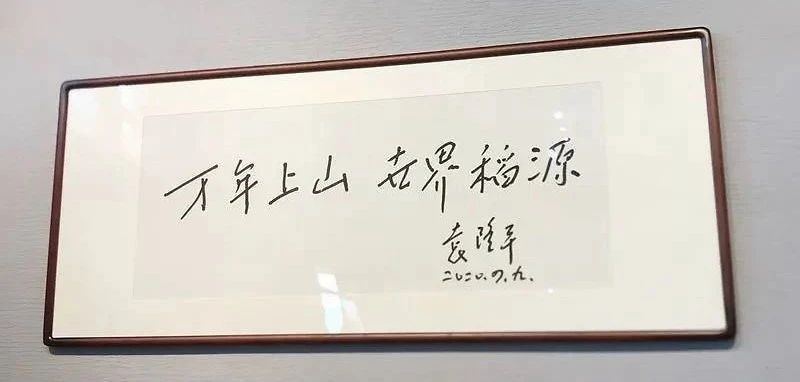 万年上山 世界稻源
袁隆平
二〇二〇.九.九.